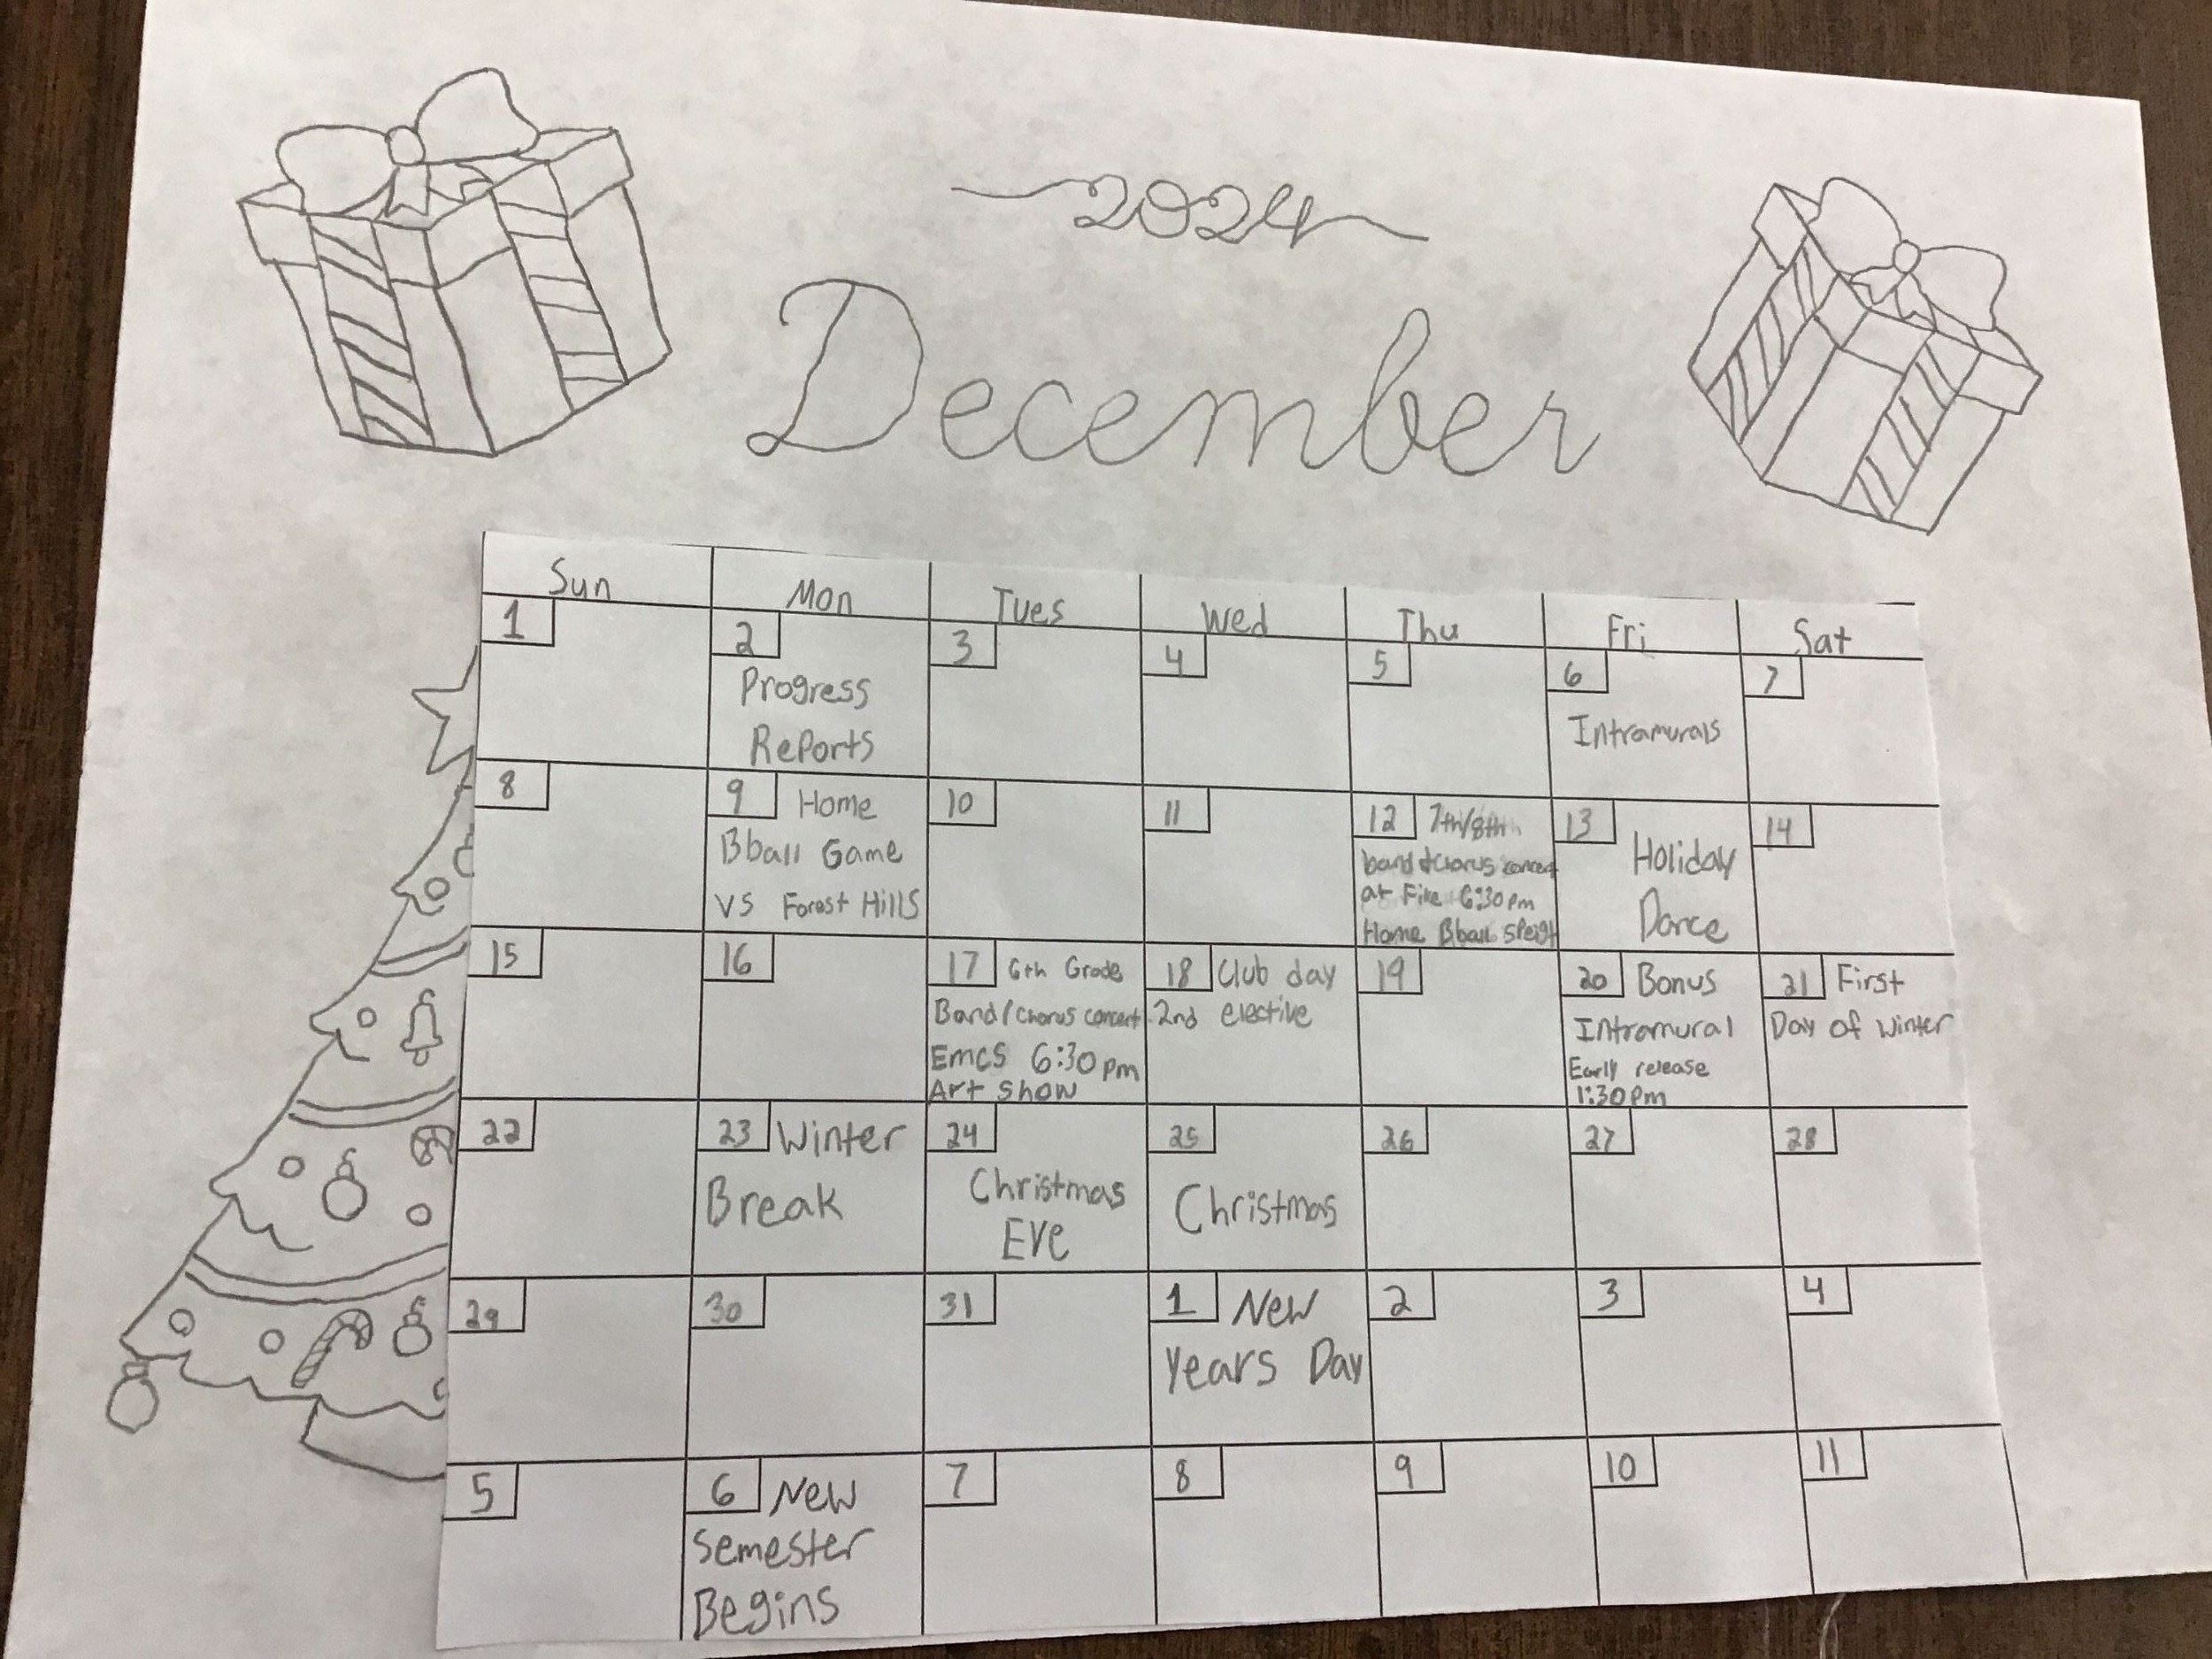 2024
December
Sun Mon Tues Wed Thu Fri Sat
1
2
Progress
Reports
3
4
5
6
Intramurals
7
8
9 Home
Bball Game
VS Forest Hills
10
11
12 7th/8th
band & chorus concert
at Fike 6:30pm
Home Bball Speight
13
Holiday
Dance
14
15
16
17 6th Grade
Band/Chorus concert
Emcs 6:30pm
Art Show
18 Club day
2nd elective
19
20 Bonus
Intramural
Early release
1:30pm
21 First
Day of Winter
22
23 Winter
Break
24
Christmas
Eve
25
Christmas
26
27
28
29
30
31
1 New
Years Day
2
3
4
5
6 New
Semester
Begins
7
8
9
10
11